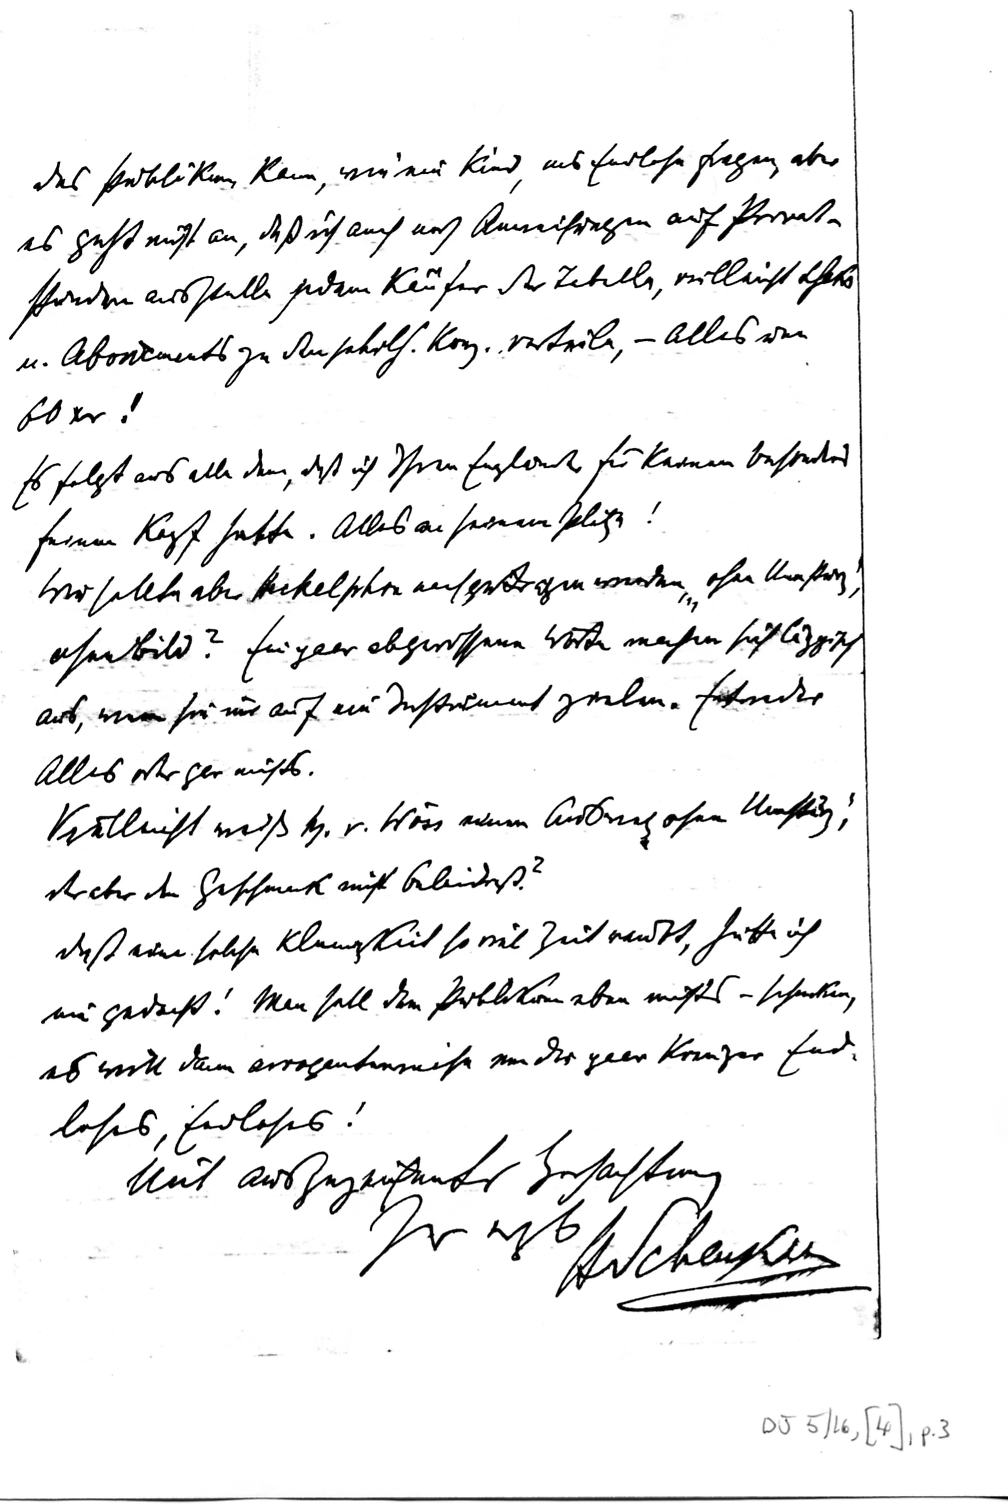 das Publikum kann, wie ein Kind, ins Endlose fragen, aber
es geht nicht an, daß ich auch noch Anweisungen auf Privat-
stunden ausstelle jedem Käufer der Tabelle, vielleicht
u. Abonements zu den Konz. verteile, – Alles um
60 xr !
Es folgt aus alle dem, daß ich Ihren Engländer für keinen besonders
feinen Kopf halte. Alles an seinem Platz !
Wie sollte aber Heckelphon nachgetragen werden, „ohne Umsturz“,
ohne Bild? Ein paar abgerissene Worte machen sich läppisch
aus, wenn sie nur auf ein Instrument zielen. Entweder
Alles oder gar nichts.
Vielleicht weiß H. v. Wöss einen Ausweg ohne Umsturz,
der aber den Geschmack nicht beleidigt?
Daß eine solche Kleinigkeit so viel Zeit raubt, hätte ich
nie gedacht! Man soll dem Publikum eben nichts – schenken,
es will dann arroganterweise um der paar Kreuzer End-
loses, Endloses !
Mit ausgezeichneter Hochachtung
Ihr ergb
HSchenker
DJ 5/16, [4], p.3